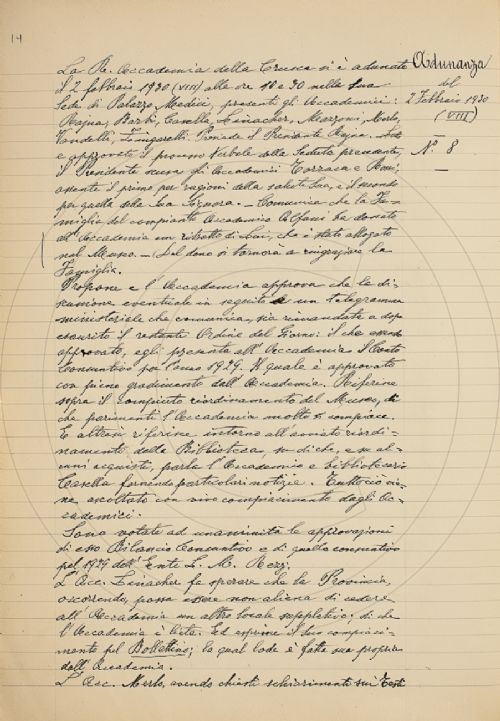 14
Adunanza
del
2 Febbraio 1930
(VIII)
—
N° 8
—
La R. Accademia della Crusca si è adunata
il 2 febbraio 1930 (VIII) alle ore 10 e 30 nella sua
Sede di Palazzo Medici, presenti gli Accademici:
Rajna, Barbi, Casella, Linacher, Mazzoni, Merlo,
Vandelli, Zingarelli. Presiede il Presidente Rajna.
e approvato il processo Verbale della Seduta precedente,
il Presidente scusa gli Accademici Torraca e
assente il primo per ragioni della salute sua, e il secondo
per quelle della sua Signora. — Comunica che la Fa-
miglia del compianto Accademico Alfani ha donato
all'Accademia un ritratto di Lui, che è stato allogato
nel Museo. — Del dono si tornerà a ringraziare la
Famiglia.
Propone e l'Accademia approva che la di-
scussione eventuale in seguito a un telegramma
ministeriale che comunica, sia rimandata a dopo
esaurito il restante Ordine del Giorno: il che essendo
approvato, egli presenta all'Accademia il Conto
Consuntivo per l'anno 1929. Il quale è approvato
con pieno gradimento dell'Accademia. Riferisce
sopra il compiuto riordinamento del Museo, di
che parimenti l'Accademia molto si compiace.
E altresì riferisce intorno all'avviato riordi-
namento della Biblioteca, su di che, e su al-
cuni acquisti, parla l'Accademico e bibliotecario
Casella fornendo particolari notizie. Tutto ciò vie-
ne ascoltato con vivo compiacimento dagli Ac-
cademici.
Sono votate ad unanimità le approvazioni
di esso Bilancio Consuntivo e di quello consuntivo
pel 1929 dell'Ente L. M. Rezzi.
L'Acc. Linacher fa sperare che la Provincia,
occorrendo, possa essere non aliena di cedere
all'Accademia un altro locale suppletivo: di che
l'Accademia è lieta. Ed esprime il suo compiaci-
mento pel Bollettino; la qual lode è fatta sua propria
dall'Accademia.
L'Acc. Merlo, avendo chiesti schiarimenti sui Testi